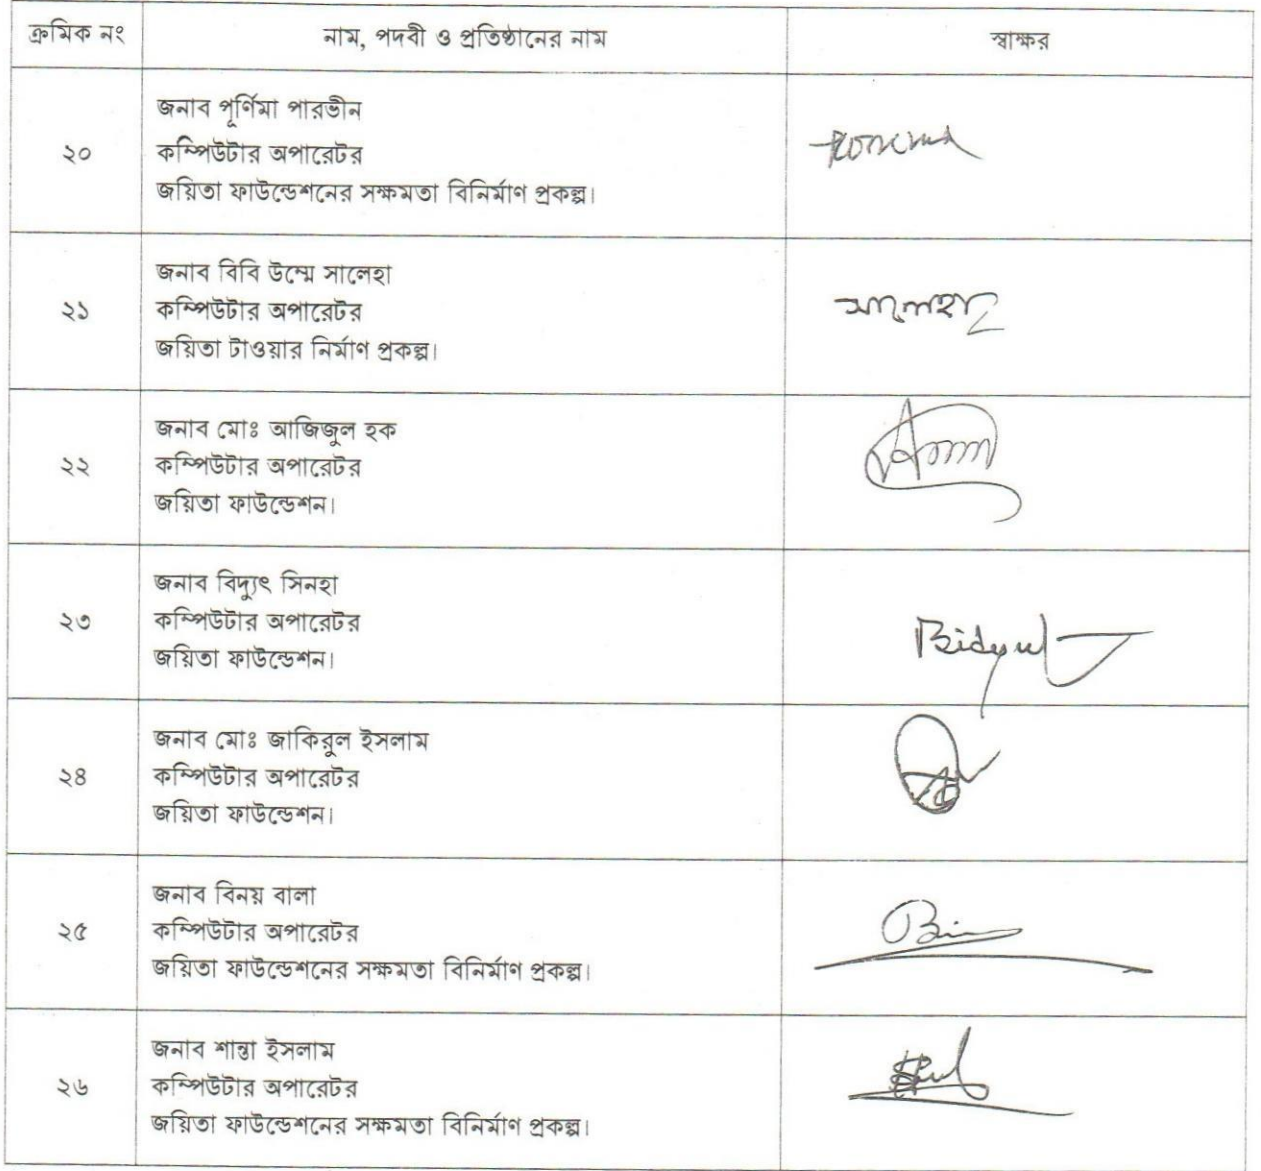 ক্রমিক নং নাম, পদবী ও প্রতিষ্ঠানের নাম স্বাক্ষর
জনাব পূর্ণিমা পারভীন
২০ কম্পিউটার অপারেটর
জয়িতা ফাউন্ডেশনের সক্ষমতা বিনির্মাণ প্রকল্প।
জনাব বিবি উম্মে সালেহা
২১ কম্পিউটার অপারেটর সালেহা
জয়িতা টাওয়ার নির্মাণ প্রকল্প।
জনাব মোঃ আজিজুল হক
২২ কম্পিউটার অপারেটর
জয়িতা ফাউন্ডেশন।
জনাব বিদ্যুৎ সিনহা
২৩ কম্পিউটার অপারেটর Bidyut
জয়িতা ফাউন্ডেশন।
জনাব মোঃ জাকিরুল ইসলাম
২৪ কম্পিউটার অপারেটর
জয়িতা ফাউন্ডেশন।
জনাব বিনয় বালা
২৫ কম্পিউটার অপারেটর
জয়িতা ফাউন্ডেশনের সক্ষমতা বিনির্মাণ প্রকল্প।
জনাব শান্তা ইসলাম
২৬ কম্পিউটার অপারেটর
জয়িতা ফাউন্ডেশনের সক্ষমতা বিনির্মাণ প্রকল্প।